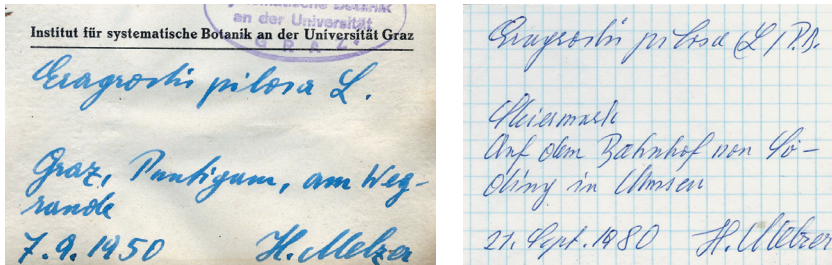 systematische Botanik
an der Universität
GRAZ
Institut für systematische Botanik an der Universität Graz
Eragrostis pilosa L.
Graz, Puntigam, am Weg-
rande
7.9.1950 H. Melzer
Eragrostis pilosa (L.) P.B.
Steiermark
Auf dem Bahnhof von Sö-
ding in
21. Sept. 1980 H. Melzer